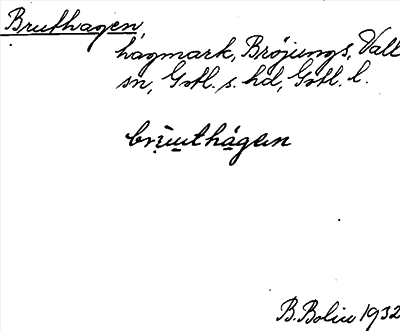 Bruthagen,
hagmark, Bröjungs, Vall
sn, Gotl. s. hd, Gotl. l.
B. Bolin 1932